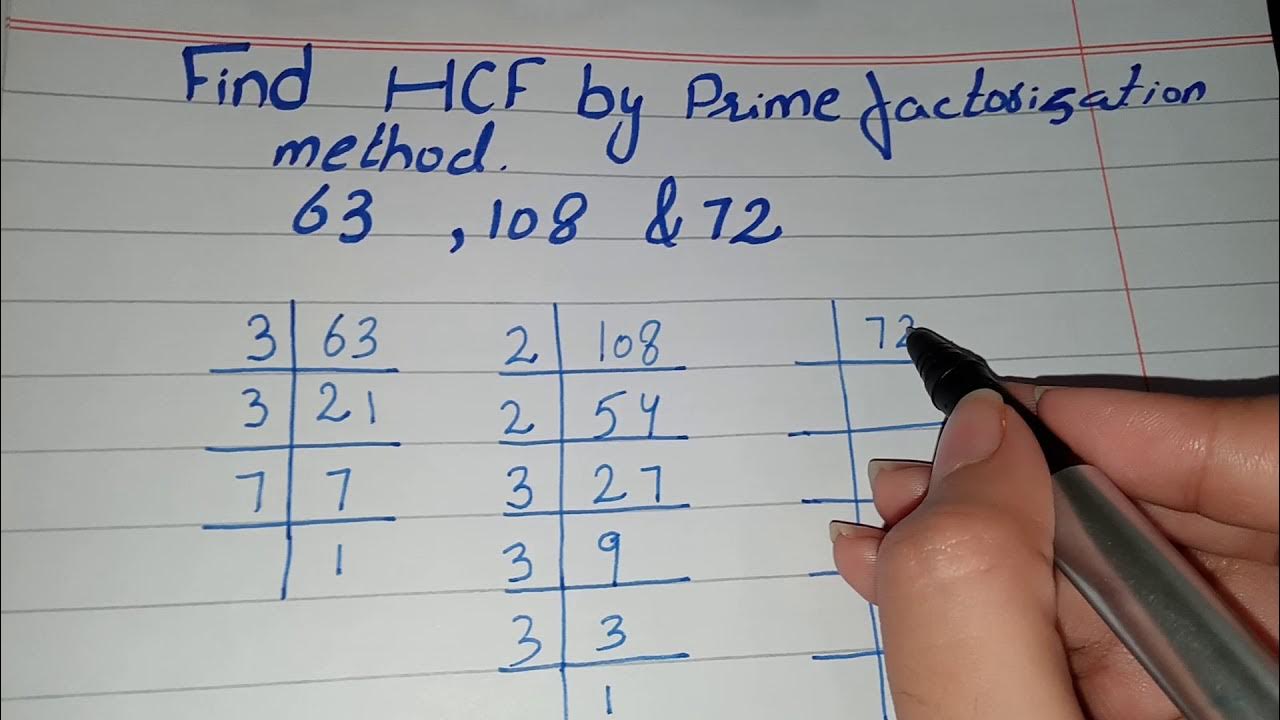 Find HCF by Prime factorisation
method.
63 , 108 & 72
3 63 2 108 72
3 21 2 54
7 7 3 27
1 3 9
3 3
1